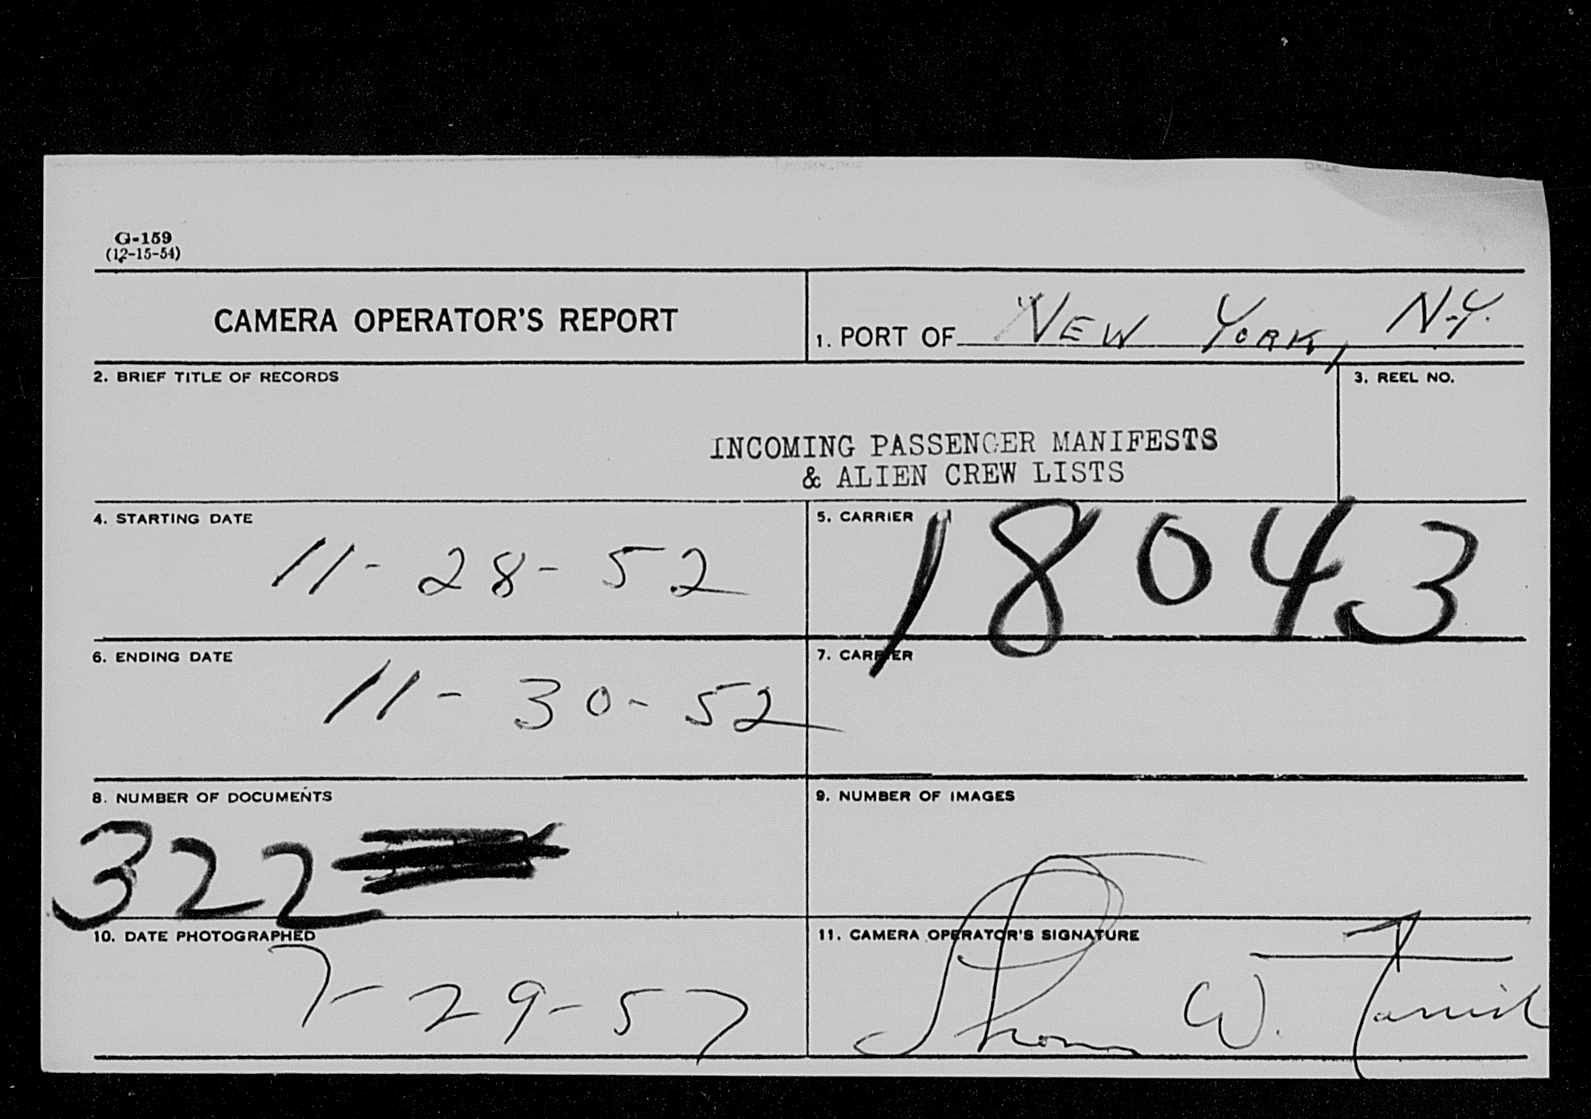 G-159
(12-15-54)
CAMERA OPERATOR'S REPORT
1. PORT OF NEW YORK, N.Y.
2. BRIEF TITLE OF RECORDS
3. REEL NO.
INCOMING PASSENGER MANIFESTS
& ALIEN CREW LISTS
4. STARTING DATE
11-28-52
5. CARRIER
18043
6. ENDING DATE
11-30-52
7. CARRIER
8. NUMBER OF DOCUMENTS
322
9. NUMBER OF IMAGES
10. DATE PHOTOGRAPHED
7-29-57
11. CAMERA OPERATOR'S SIGNATURE
Thomas W.